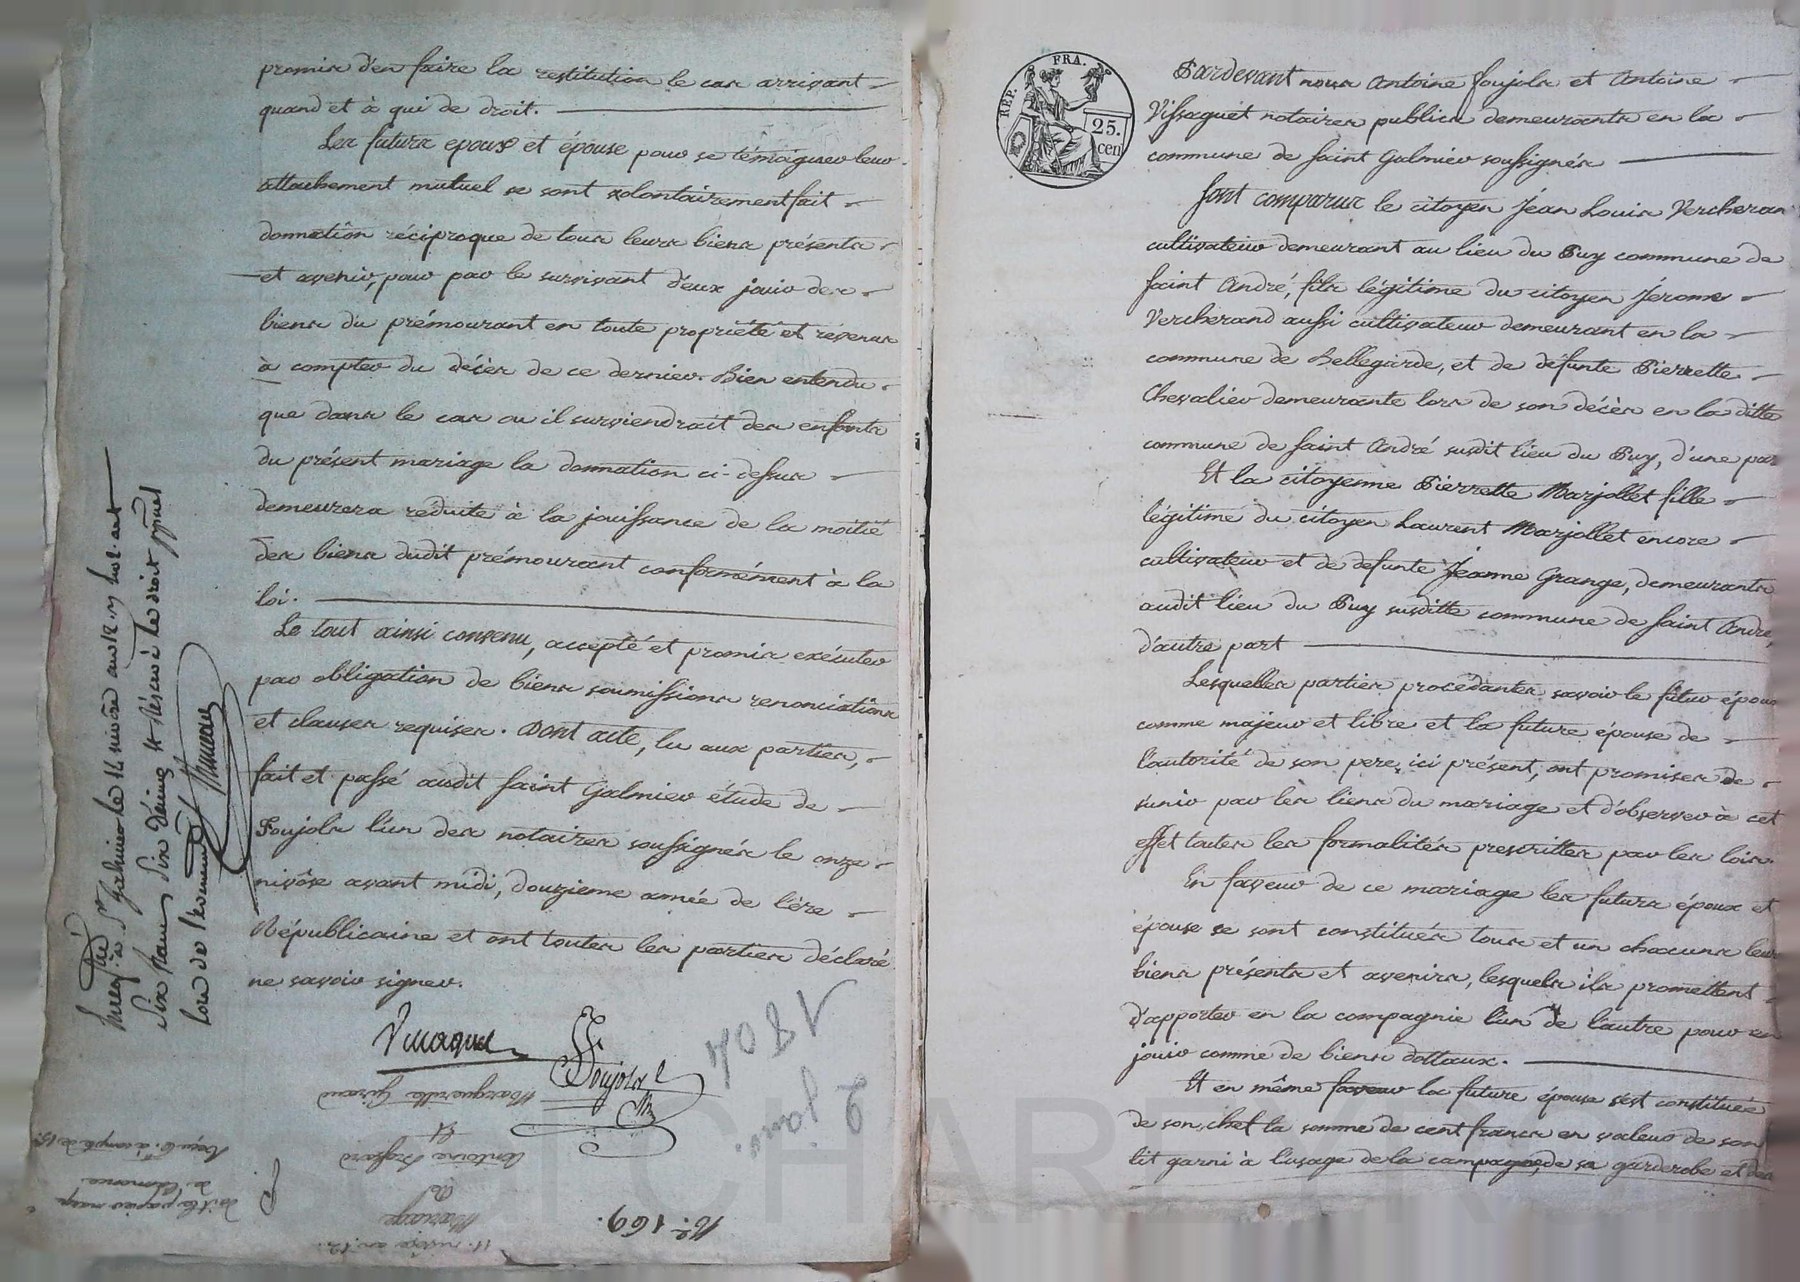 promis d'en faire la restitution le cas arrivant
quand et à qui de droit.
Les futurs epoux et épouse pour se témoigner leur
attachement mutuel se sont volontairement fait
donnation réciproque de tous leurs biens présents
et avenir, pour par le survivant d'eux jouir des
biens du prémourant en toute propriété et revenus
à compter du décès de ce dernier. Bien entendu
que dans le cas ou il surviendrait des enfants
du présent mariage la donnation ci-dessus
demeurera réduite à la jouissance de la moitié
des biens dudit prémourant conformément à la
loi.
Le tout ainsi convenu, accepté et promis exécuter
par obligation de biens soumissions renonciations
et clauses requises. Dont acte, lu aux parties,
fait et passé audit Saint Galmier étude de
Foujols l'un des notaires soussignés le onze
nivôse avant midi, douzieme année de l'ère
Républicaine et ont toutes les parties déclaré
ne savoir signer.
Foujols
1804
2 janv.
Margueritte Giraud
Et
Antoine
de
Mariage
N.º 169.
11. nivôse an 12.
REP. FRA.
25. cen
Pardevant nous Antoine Foujols et Antoine
Vissaguet notaires publics demeurants en la
commune de Saint Galmier soussignés
Sont comparus le citoyen Jean Louis Vercheran
cultivateur demeurant au lieu du Puy commune de
Saint André, fils légitime du citoyen Jérome
Vercherand aussi cultivateur demeurant en la
commune de Bellegarde, et de défunte Pierrette
Chevalier demeurante lors de son décès en la ditte
commune de Saint André susdit lieu du Puy, d'une par
Et la citoyenne Pierrette Marjollet fille
légitime du citoyen Laurent Marjollet encore
cultivateur et de defunte Jeanne Grange, demeurants
audit lieu du Puy susditte commune de Saint André,
d'autre part
Lesquelles parties procédantes savoir le fûtur époux
comme majeur et libre et la future épouse de
l'autorité de son pere, ici présent, ont promises de
s'unir par les liens du mariage et d'observer à cet
effet toutes les formalités prescrittes par les lois.
En faveur de ce mariage les futurs époux et
épouse se sont constitués tous et un chacuns leurs
biens présents et avenirs, lesquels ils promettent
d'apporter en la compagnie l'un de l'autre pour en
jouir comme de biens dottaux.
Et en même faveur la future épouse s'est constituée
de son chef la somme de cent francs en valeur de son
lit garni à l'usage de la campagne, de sa garderobe et des